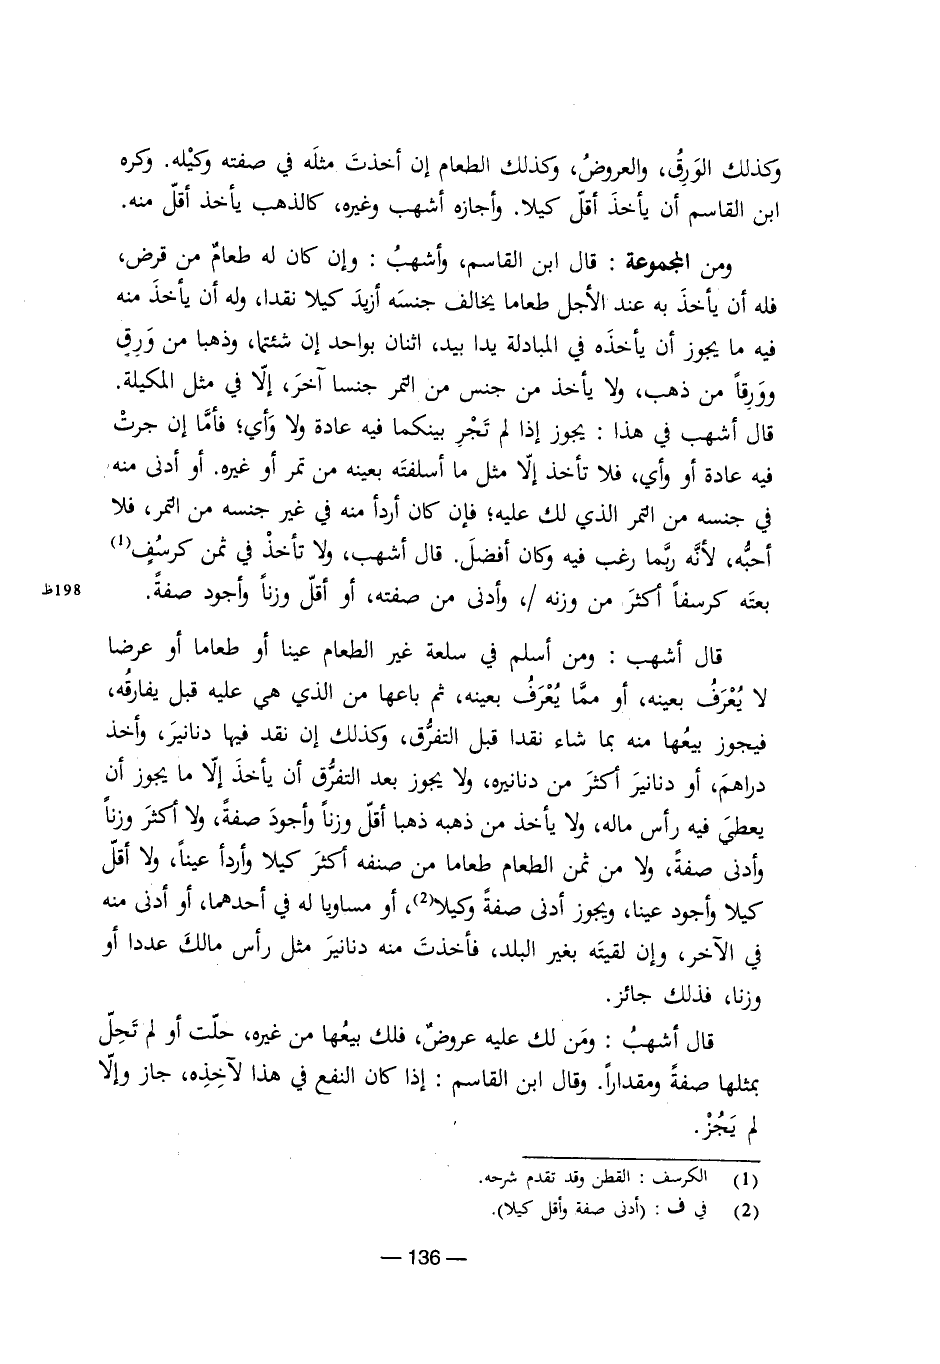 وكذلك الوَرِقُ، والعروضُ، وكذلك الطعام إن أخذتَ مثلَه في صفته وكيْله. وكره
ابن القاسم أن يأخذَ أقلّ كيلا. وأجازه أشهب وغيره، كالذهب يأخذ أقلّ منه.
ومن المجموعة : قال ابن القاسم، وأشهبُ : وإن كان له طعامٌ من قرض،
فله أن يأخذَ به عند الأجل طعاما يخالف جنسَه أزيدَ كيلا نقدا، وله أن يأخذَ منه
فيه ما يجوز أن يأخذَه في المبادلة يدا بيد، اثنان بواحد إن شئتما، وذهبا من وَرِقٍ
ووَرِقاً من ذهب، ولا يأخذ من جنس من التمر جنسا آخرَ، إلّا في مثل المكيلة.
قال أشهب في هذا : يجوز إذا لم تَجْرِ بينكما فيه عادة ولا وَأي؛ فأمَّا إن جرتْ
فيه عادة أو وأي، فلا تأخذ إلّا مثل ما أسلفتَه بعينه من تمر أو غيره. أو أدنى منه
في جنسه من التمر الذي لك عليه؛ فإن كان أردأ منه في غير جنسه من التمر، فلا
أحبُّه، لأنَّه ربَّما رغب فيه وكان أفضلَ. قال أشهب، ولا تأخذْ في ثمن كرسُفٍ(1)
بعتَه كرسفاً أكثرَ من وزنه /، وأدنى من صفته، أو أقلّ وزناً وأجود صفةً. 198ظ
قال أشهب : ومن أسلم في سلعة غير الطعام عينا أو طعاما أو عرضا
لا يُعْرَفُ بعينه، أو ممَّا يُعْرَفُ بعينه، ثم باعها من الذي هي عليه قبل يفارقُه،
فيجوز بيعُها منه بما شاء نقدا قبل التفرُّق، وكذلك إن نقد فيها دنانيرَ، وأخذ
دراهمَ، أو دنانيرَ أكثرَ من دنانيره، ولا يجوز بعد التفرُّق أن يأخذَ إلّا ما يجوز أن
يعطيَ فيه رأس ماله، ولا يأخذ من ذهبه ذهبا أقلّ وزناً وأجودَ صفةً، ولا أكثرَ وزناً
وأدنى صفةً، ولا من ثمن الطعام طعاما من صنفه أكثرَ كيلا وأردأ عيناً، ولا أقلّ
كيلا وأجود عينا، ويجوز أدنى صفةً وكيلا(2)، أو مساويا له في أحدهما، أو أدنى منه
في الآخر، وإن لقيتَه بغير البلد، فأخذتَ منه دنانيرَ مثل رأس مالكَ عددا أو
وزنا، فذلك جائز.
قال أشهبُ : ومَن لك عليه عروضٌ، فلك بيعُها من غيره، حلّت أو لم تَحِلّ
بمثلها صفةً ومقداراً. وقال ابن القاسم : إذا كان النفع في هذا لآخِذِه، جاز وإلّا
لم يَجُزْ.
(1) الكرسف : القطن وقد تقدم شرحه.
(2) في ف : (أدنى صفة وأقل كيلا).
— 136 —